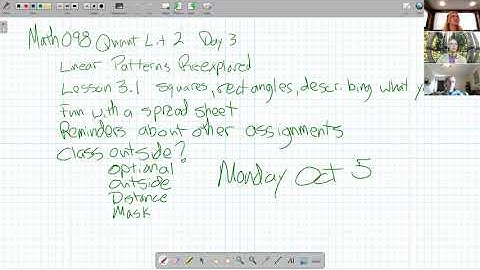 Math 098 Quant Lit 2 Day 3
Linear Patterns Reexplored
Lesson 3.1 squares, rectangles, describing what y
Fun with a spread sheet
Reminders about other assignments
Class outside?
optional
outside
Distance
Mask
Monday Oct 5